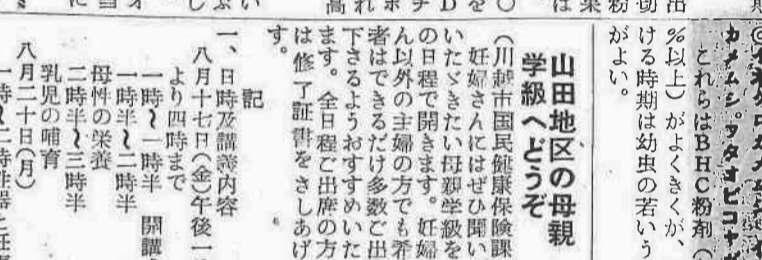 カメムシ。ツタオビコヤガ
これらはBHC粉剤（
％以上）がよくきくが、
ける時期は幼虫の若いう
がよい。
山田地区の母親
学級へどうぞ
（川越市国民健康保険課
妊婦さんにはぜひ聞い
いたゞきたい母親学級を
の日程で開きます。妊婦
ん以外の主婦の方でも希
者はできるだけ多数ご出
下さるようおすすめいた
ます。全日程ご出席の方
は修了証書をさしあげ
す。
記
一、日時及講義内容
八月十七日（金）午後一
より四時まで
一時〜一時半　開講
一時半〜二時半
母性の栄養
二時半〜三時半
乳児の哺育
八月二十日（月）
一時〜二時